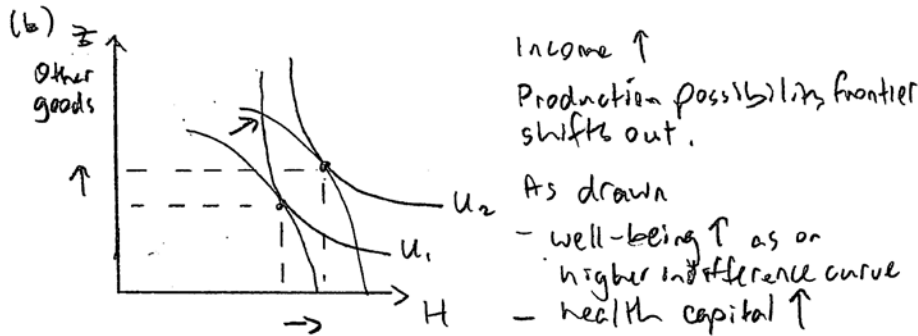 (b) Z
Other
goods
↑
H
→
U₁
U₂
Income ↑
Production possibility frontier
shifts out.
As drawn
- well-being ↑ as on
higher indifference curve
- health capital ↑